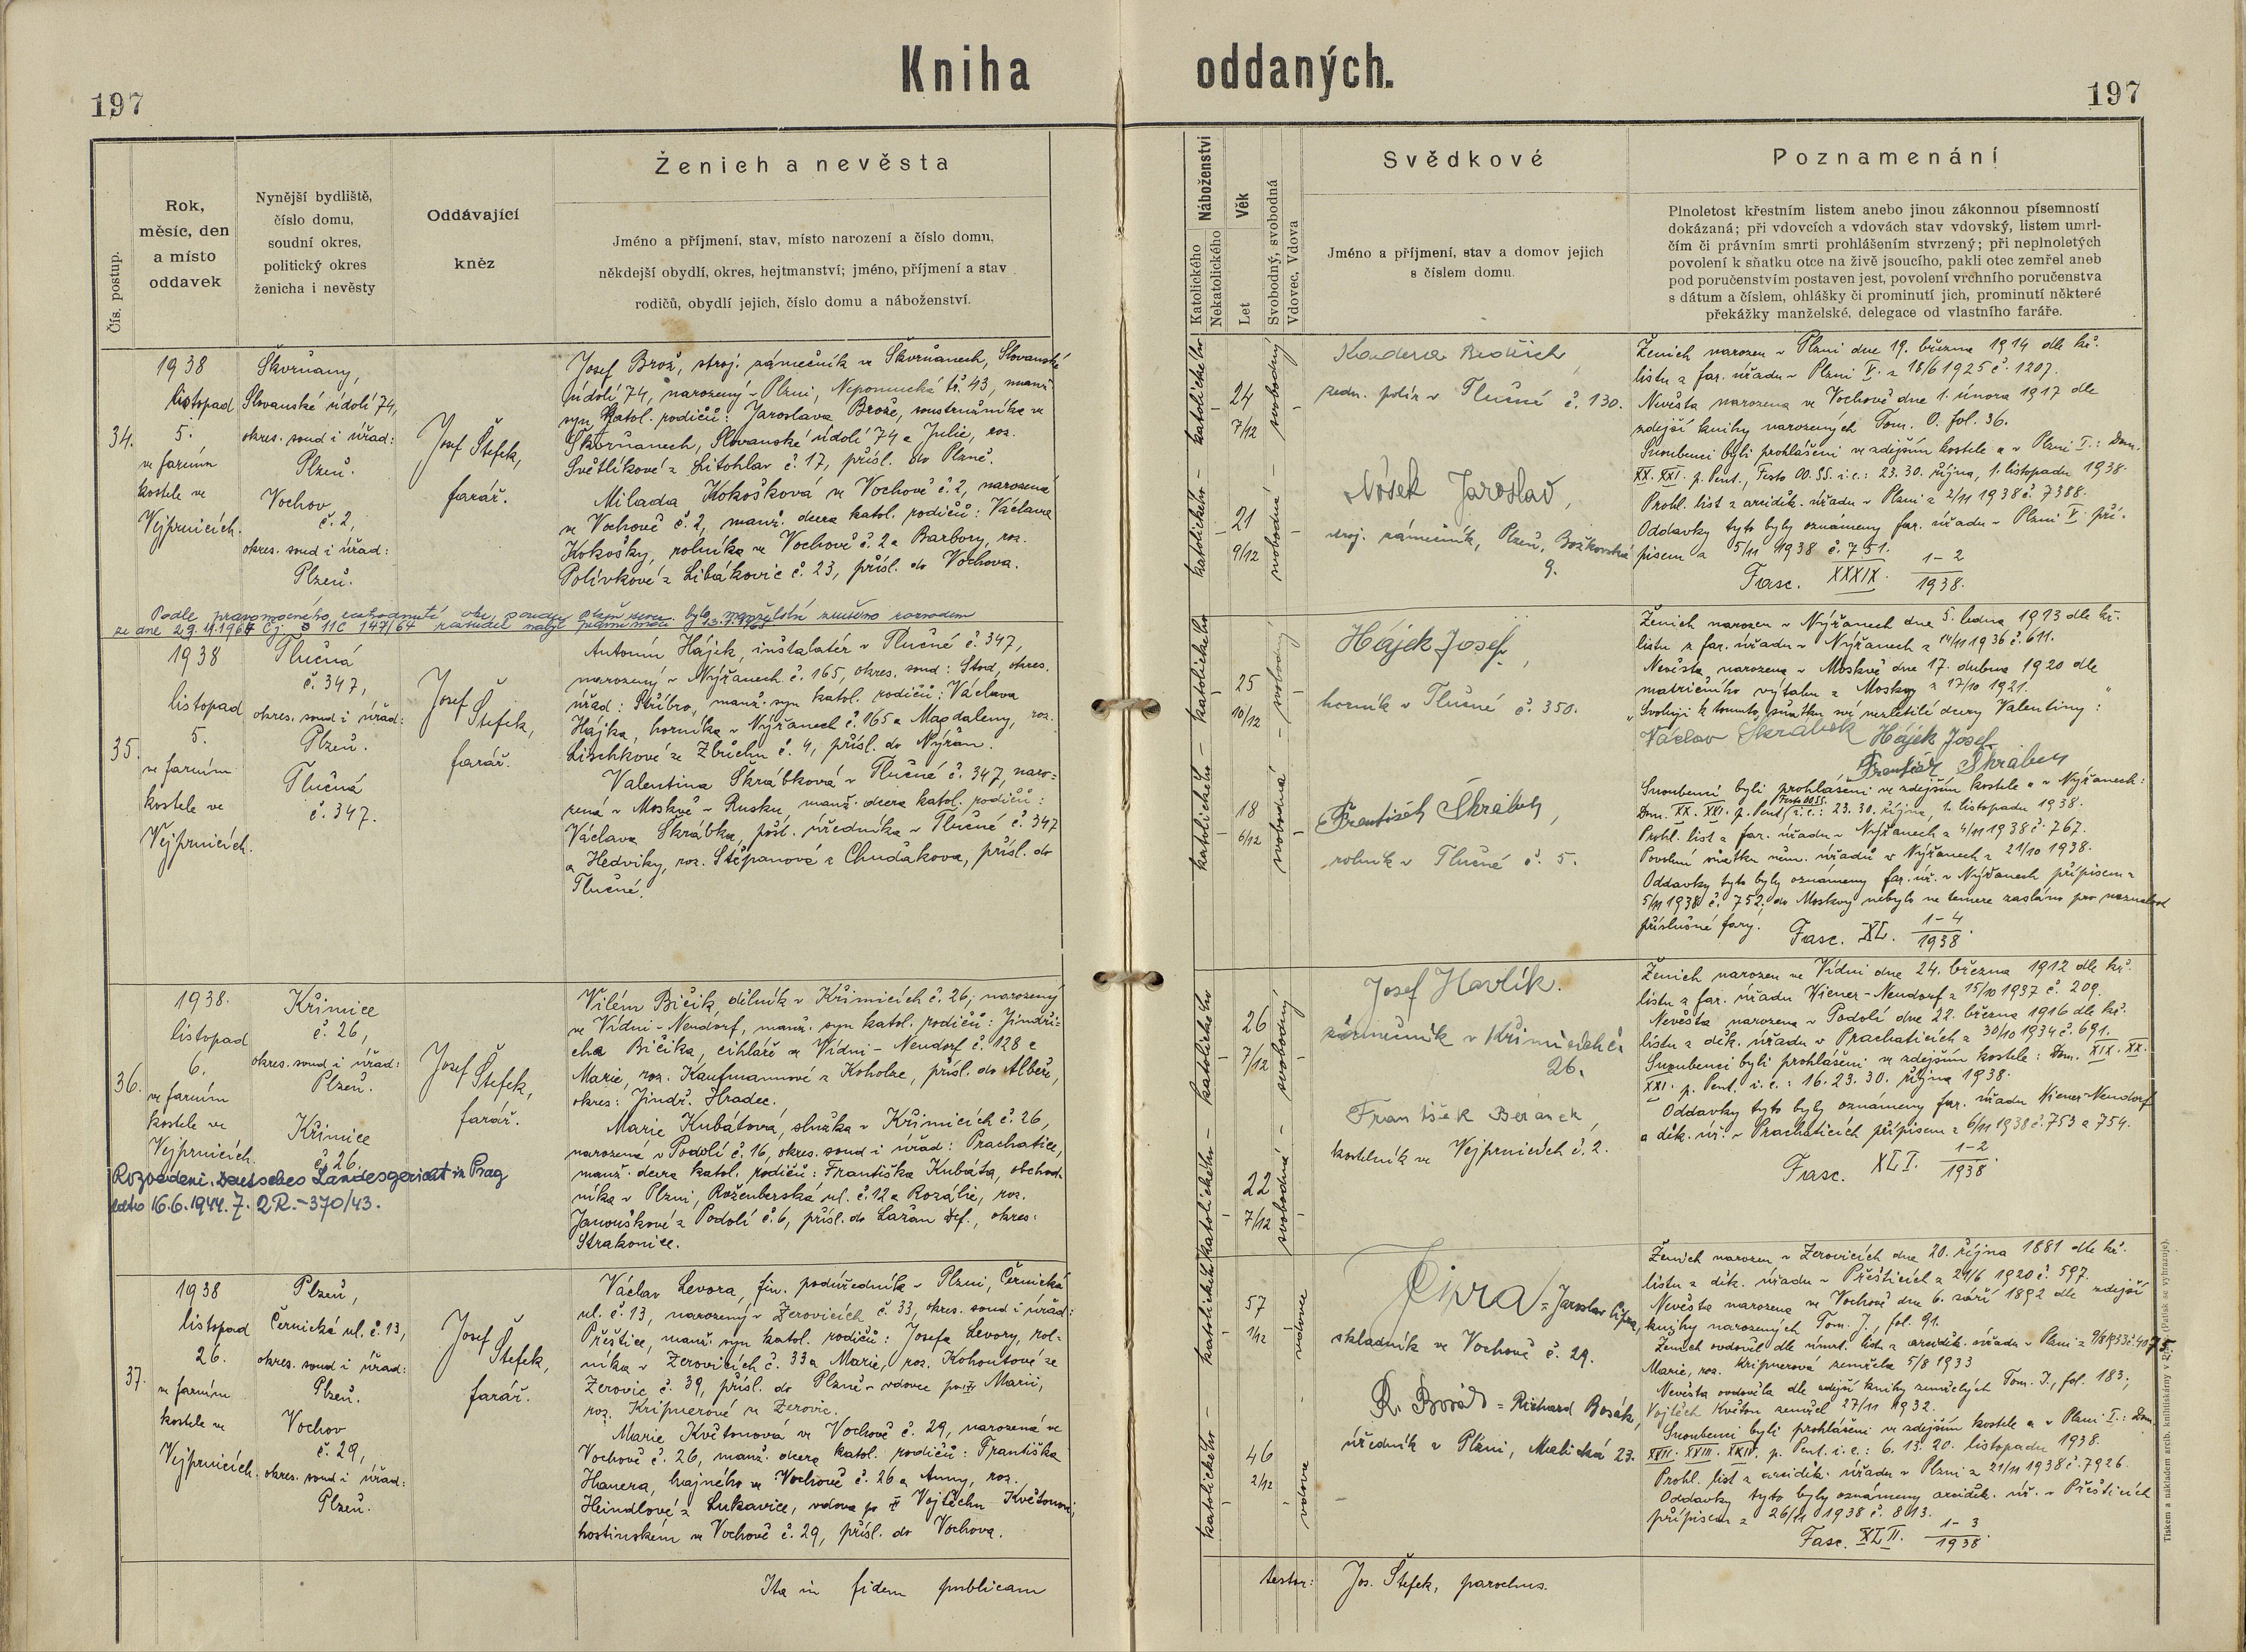 Kniha oddaných.
197
197
Čís. postup.
Rok,
měsíc, den
a místo
oddavek
Nynější bydliště,
číslo domu,
soudní okres,
politický okres
ženicha i nevěsty
Oddávající
kněz
Ženich a nevěsta
Jméno a příjmení, stav, místo narození a číslo domu,
někdejší obydlí, okres, hejtmanství; jméno, příjmení a stav
rodičů, obydlí jejich, číslo domu a náboženství.
Náboženství
Katolického
Nekatolického
Věk
Let
Svobodný, svobodná
Vdovec, Vdova
Svědkové
Jméno a příjmení, stav a domov jejich
s číslem domu.
Poznamenání
Plnoletost křestním listem anebo jinou zákonnou písemností
dokázaná; při vdovcích a vdovách stav vdovský, listem umrl-
čím či právním smrti prohlášením stvrzený; při neplnoletých
povolení k sňatku otce na živě jsoucího, pakli otec zemřel aneb
pod poručenstvím postaven jest, povolení vrchního poručenstva
s dátum a číslem, ohlášky či prominutí jich, prominutí některé
překážky manželské, delegace od vlastního faráře.
34.
1938
listopad
5.
ve farním
kostele ve
Vejprnicích.
Škvrňany,
Slovanské údolí 74,
okres. soud i úřad:
Plzeň.
Vochov
č. 2,
okres. soud i úřad:
Plzeň.
Josef Štefek,
farář.
Josef Brož, stroj. zámečník ve Škvrňanech, Slovanské
údolí 74, narozený v Plzni, Nepomucká tř. 43, manž.
syn katol. rodičů: Jaroslava Brože, soustružníka ve
Škvrňanech, Slovanské údolí 74 a Julie, roz.
Světlíkové z Litohlav č. 17, přísl. do Plzně.
Milada Kokošková ve Vochově č. 2, narozená
ve Vochově č. 2, manž. dcera katol. rodičů: Václava
Kokošky, rolníka ve Vochově č. 2 a Barbory, roz.
Polívkové z Libákovic č. 23, přísl. do Vochova.
katolického – katolického –
24
7/12
21
9/12
svobodný – svobodná –
Kandera Bedřich,
zedn. polír v Tlučné č. 130.
Nósek Jaroslav,
stroj. zámečník, Plzeň, Božkovská
9.
Ženich narozen v Plzni dne 19. března 1914 dle kř.
listu z far. úřadu v Plzni V. z 18/6 1925 č. 1207.
Nevěsta narozena ve Vochově dne 1. února 1917 dle
zdejší knihy narozených Tom. O. fol. 36.
Snoubenci byli prohlášeni ve zdejším kostele a v Plzni I.: Dom.
XX. XXI. p. Pent., Festo OO. SS. i. e.: 23. 30. října, 1. listopadu 1938.
Prohl. list z arciděk. úřadu v Plzni z 2/11 1938 č. 7388.
Oddavky tyto byly oznámeny far. úřadu v Plzni V. pří-
pisem z 5/11 1938 č. 751.
Fasc. XXXIX. 1–2
1938.
Podle pravomocného rozhodnutí okr. soudu Plzeň bylo manželství zrušeno rozvodem
ze dne 29.4.1964 č.j. 11C 147/64
35.
1938
listopad
5.
ve farním
kostele ve
Vejprnicích.
Tlučná
č. 347,
okres. soud i úřad:
Plzeň.
Tlučná
č. 347.
Josef Štefek,
farář.
Antonín Hájek, inštalatér v Tlučné č. 347,
narozený v Nýřanech č. 165, okres. soud: Stod, okres.
úřad: Stříbro, manž. syn katol. rodičů: Václava
Hájka, horníka v Nýřanech č. 165 a Magdaleny, roz.
Lischkové ze Zbůchu č. 4, přísl. do Nýřan.
Valentina Škrábková v Tlučné č. 347, naro-
zená v Moskvě v Rusku, manž. dcera katol. rodičů:
Václava Škrábka, pošt. úředníka v Tlučné č. 347
a Hedviky, roz. Štěpanové z Chuďákova, přísl. do
Tlučné.
katolického – katolického –
25
10/12
18
6/12
svobodný – svobodná –
Hájek Josef,
horník v Tlučné č. 350.
František Škrábek,
rolník v Tlučné č. 5.
Ženich narozen v Nýřanech dne 5. ledna 1913 dle kř.
listu z far. úřadu v Nýřanech z 14/11 1936 č. 611.
Nevěsta narozena v Moskvě dne 17. dubna 1920 dle
matričního výtahu z Moskvy z 17/10 1921.
„Svoluji k tomuto sňatku své nezletilé dcery Valentiny:“
Václav Škrábek Hájek Josef
František Škrábek
Snoubenci byli prohlášeni ve zdejším kostele a v Nýřanech:
Dom. XX. XXI. p. Pent. Festo OO SS. i. e.: 23. 30. října, 1. listopadu 1938.
Prohl. list z far. úřadu v Nýřanech z 4/11 1938 č. 767.
Povolení sňatku něm. úřadů v Nýřanech z 21/10 1938.
Oddavky tyto byly oznámeny far. úř. v Nýřanech přípisem z
5/11 1938 č. 752; do Moskvy nebylo ne temere zasláno pro neznalost
příslušné fary.
Fasc. XL. 1–4
1938.
36.
1938.
listopad
6.
ve farním
kostele ve
Vejprnicích.
Křimice
č. 26,
okres. soud i úřad:
Plzeň.
Křimice
č. 26.
Josef Štefek,
farář.
Rozvedeni. Deutsches Landesgericht in Prag
16.6.1944. 7. 2 R.–370/43.
Vilém Bičík, dělník v Křimicích č. 26, narozený
ve Vídni-Neudorf, manž. syn katol. rodičů: Jindři-
cha Bičíka, cihláře ve Vídni-Neudorf č. 128 a
Marie, roz. Kaufmannové z Koholze, přísl. do Albeře,
okres: Jindř. Hradec.
Marie Kubátová, služka v Křimicích č. 26,
narozená v Podolí č. 16, okres. soud i úřad: Prachatice,
manž. dcera katol. rodičů: Františka Kubáta, obchod-
níka v Plzni, Roženberská ul. č. 12 a Rozálie, roz.
Janouškové z Podolí č. 6, přísl. do Lažan Def., okres:
Strakonice.
katolického – katolického –
26
7/12
22
7/12
svobodný – svobodná –
Josef Havlík.
zámečník v Křimicích č.
26.
František Beránek,
kostelník ve Vejprnicích č. 2.
Ženich narozen ve Vídni dne 24. března 1912 dle kř.
listu z far. úřadu Wiener-Neudorf z 15/10 1937 č. 209.
Nevěsta narozena v Podolí dne 22. března 1916 dle kř.
listu z děk. úřadu v Prachaticích z 30/10 1934 č. 691.
Snoubenci byli prohlášeni ve zdejším kostele: Dom. XIX. XX.
XXI. p. Pent. i. e.: 16. 23. 30. října 1938.
Oddavky tyto byly oznámeny far. úřadu Wiener-Neudorf
a děk. úř. v Prachaticích přípisem z 6/11 1938 č. 753 a 754.
Fasc. XLI. 1–2
1938.
37.
1938
listopad
26.
ve farním
kostele ve
Vejprnicích.
Plzeň,
Černická ul. č. 13,
okres. soud i úřad:
Plzeň.
Vochov
č. 29,
okres. soud i úřad:
Plzeň.
Josef Štefek,
farář.
Václav Levora, fin. podúředník v Plzni, Černická
ul. č. 13, narozený v Žerovicích č. 33, okres. soud i úřad:
Přeštice, manž. syn katol. rodičů: Josefa Levory, rol-
níka v Žerovicích č. 33 a Marie, roz. Kohoutové ze
Žerovic č. 39, přísl. do Plzně – vdovec po Marii,
roz. Kripnerové ze Žerovic.
Marie Květonová ve Vochově č. 29, narozená ve
Vochově č. 26, manž. dcera katol. rodičů: Františka
Hanera, hajného ve Vochově č. 26 a Anny, roz.
Heindlové z Lukavice, vdova po Vojtěchu Květonovi,
hostinském ve Vochově č. 29, přísl. do Vochova.
katolického – katolického –
57
1/12
46
2/12
vdovec – vdova –
Cipra = Jaroslav Cipra,
skladník ve Vochově č. 29.
R. Bosák = Richard Bosák,
úředník v Plzni, Malická 23.
Ženich narozen v Žerovicích dne 20. října 1881 dle kř.
listu z děk. úřadu v Přešticích z 21/6 1920 č. 597.
Nevěsta narozena ve Vochově dne 6. září 1892 dle zdejší
knihy narozených Tom. J., fol. 91.
Ženich ovdověl dle úmrt. listu z arciděk. úřadu v Plzni z 9/8 1933 č. 4175.
Marie, roz. Kripnerová zemřela 5/8 1933
Nevěsta ovdověla dle zdejší knihy zemřelých Tom. I., fol. 183;
Vojtěch Květon zemřel 27/11 1932.
Snoubenci byli prohlášeni ve zdejším kostele a v Plzni I.: Dom.
XXII. XXIII. XXIV. p. Pent. i. e.: 6. 13. 20. listopadu 1938.
Prohl. list z arciděk. úřadu v Plzni z 21/11 1938 č. 7926.
Oddavky tyto byly oznámeny arciděk. úř. v Přešticích
přípisem z 26/11 1938 č. 813.
Fasc. XLII. 1–3
1938.
Ita in fidem publicam
testor: Jos. Štefek, parochus.
Tiskem a nákladem arcib. knihtiskárny v Praze. (Patisk se vyhrazuje).